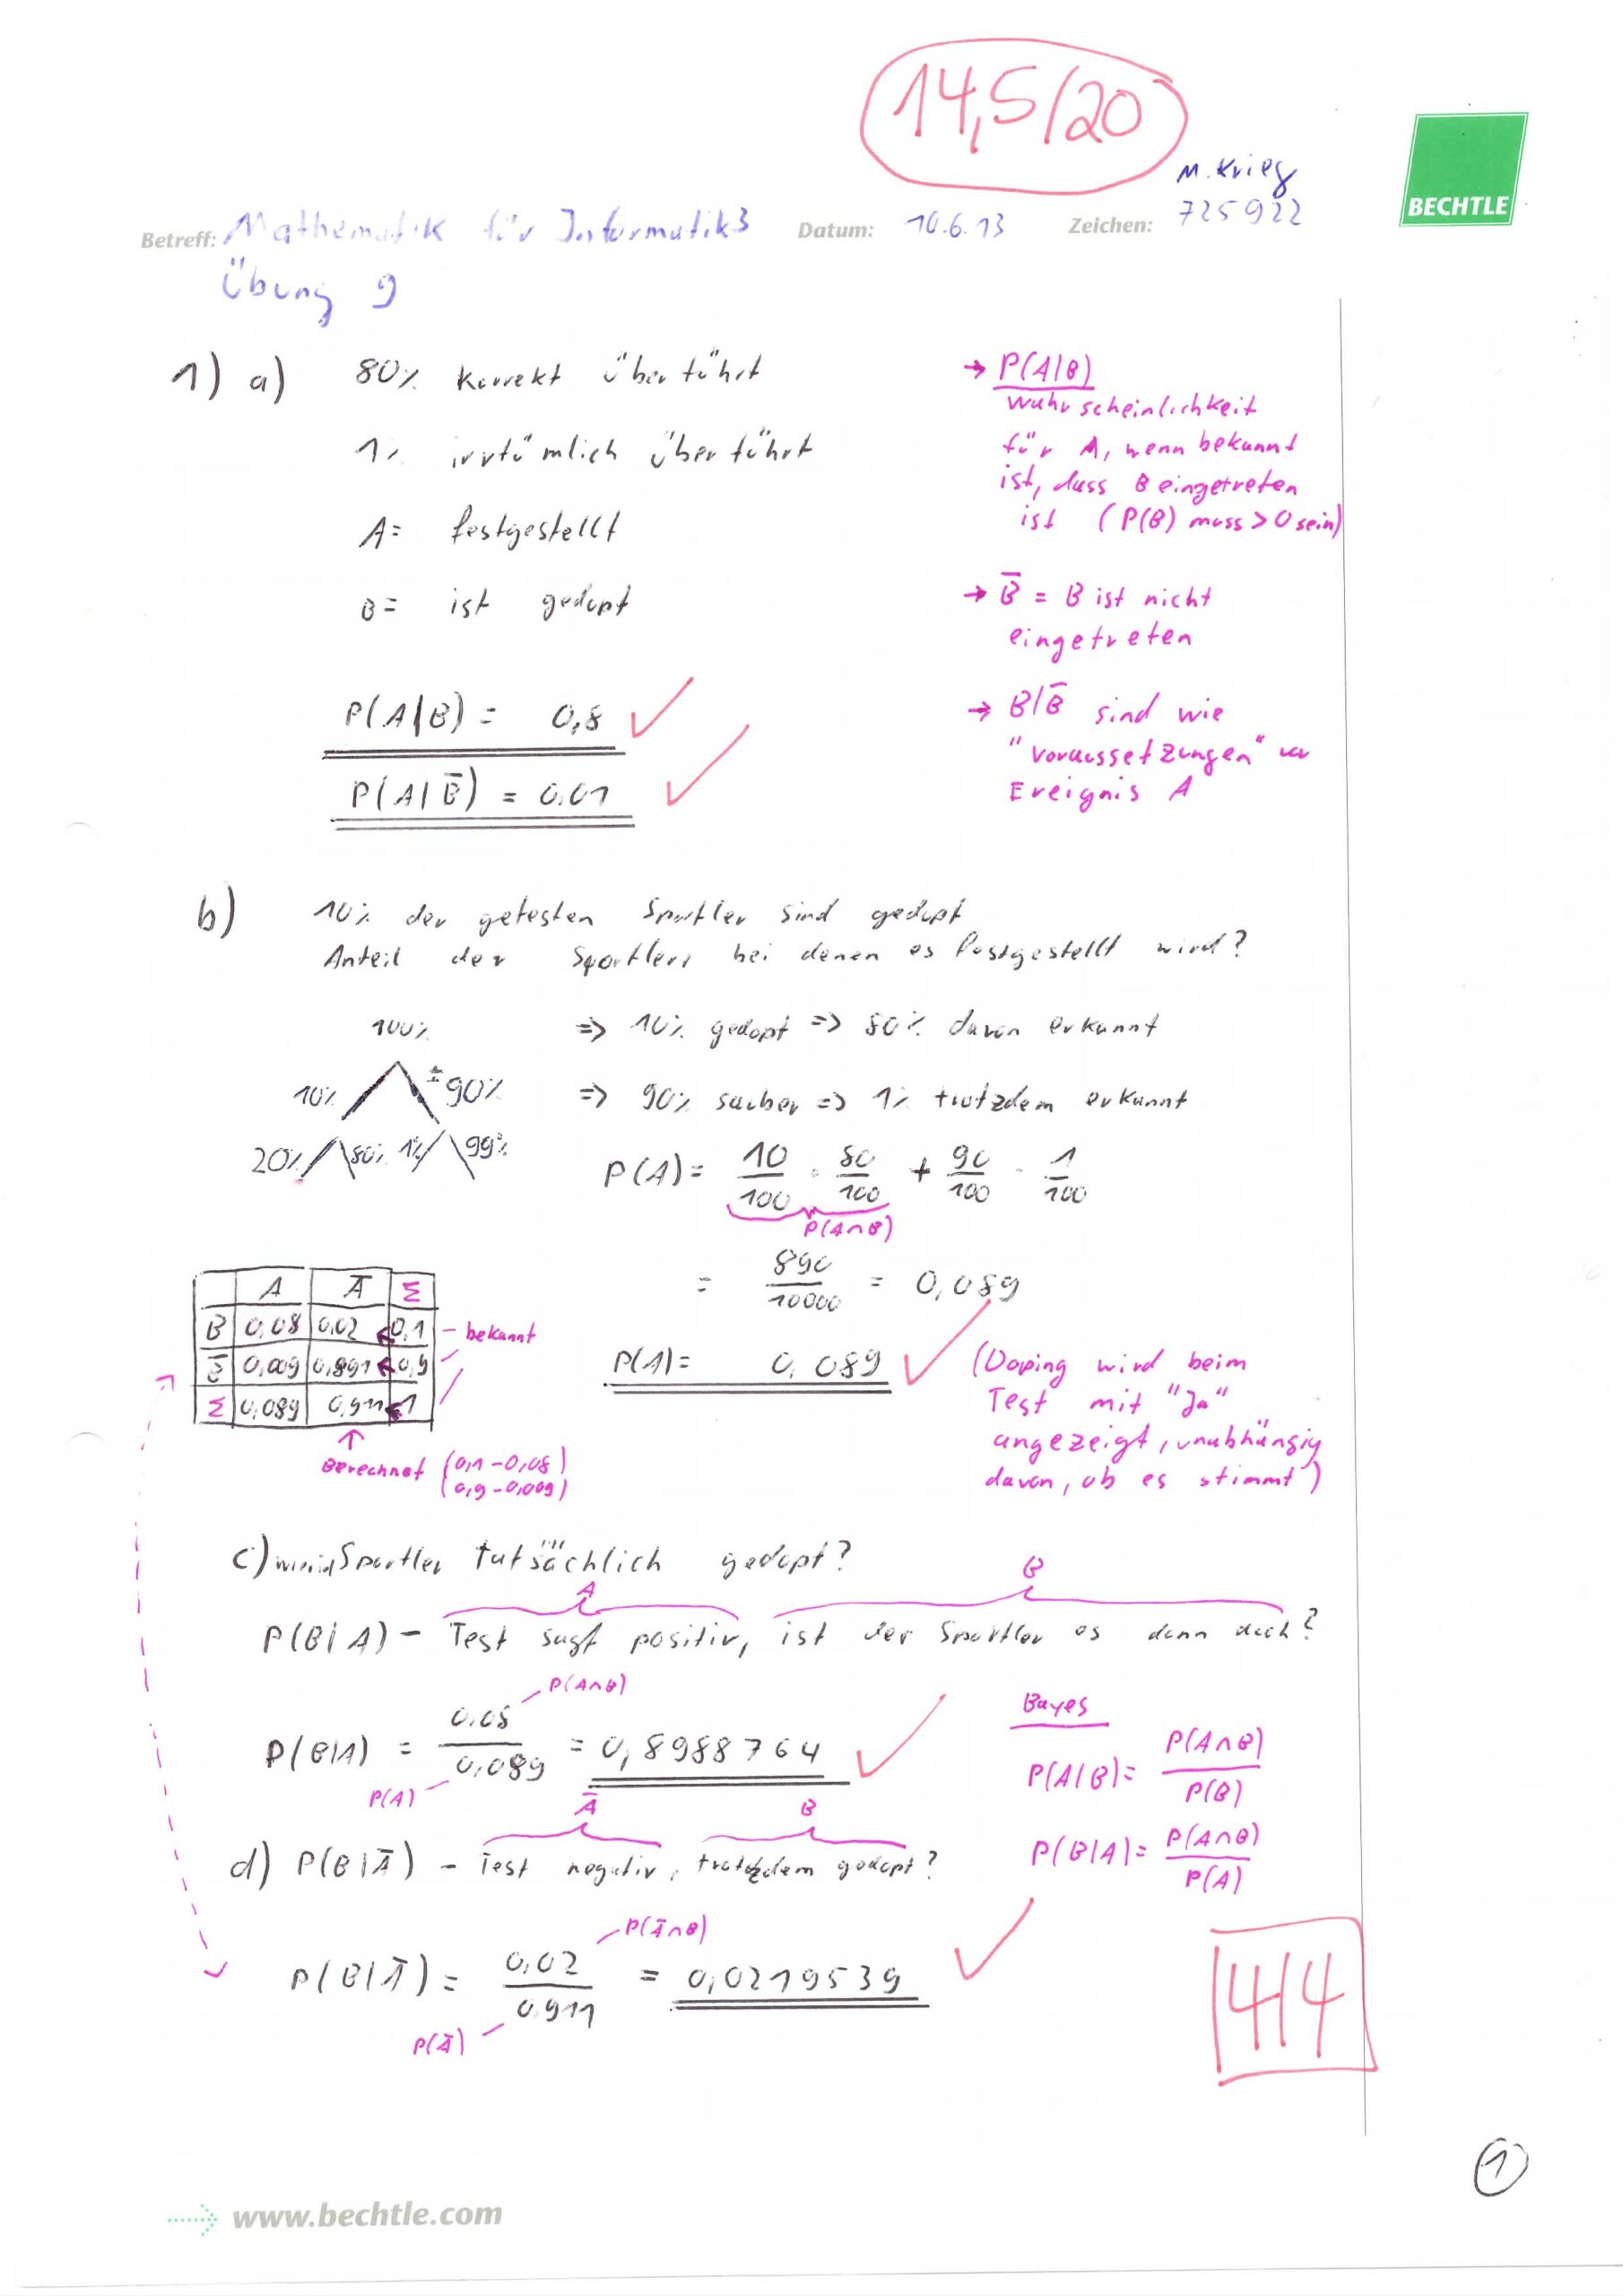 14,5/20
M. Krieg
BECHTLE
Betreff: Mathematik für Informatik 3 Datum: 10.6.13 Zeichen: 725922
Übung 9
1) a) 80% korrekt überführt
1% irrtümlich überführt
A= festgestellt
B= ist gedopt
P(A|B) = 0,8
P(A|B̅) = 0,01
→ P(A|B)
Wahrscheinlichkeit
für A, wenn bekannt
ist, dass B eingetreten
ist (P(B) muss >0 sein)
→ B̅ = B ist nicht
eingetreten
→ B/B̅ sind wie
"Voraussetzungen"
Ereignis A
b) 10% der getesten Sportler sind gedopt
Anteil der Sportlern bei denen es festgestellt wird?
100%
10% 90%
20% 80% 1% 99%
=> 10% gedopt => 80% davon erkannt
=> 90% sauber => 1% trotzdem erkannt
P(A) = 10/100 · 80/100 + 90/100 · 1/100
P(A∩B)
= 890/10000 = 0,089
P(A) = 0,089
A A̅ Σ
B 0,08 0,02 0,1 - bekannt
B̅ 0,009 0,891 0,9
Σ 0,089 0,911 1
Berechnet (0,1-0,08)
(0,9-0,009)
(Doping wird beim
Test mit "Ja"
angezeigt, unabhängig
davon, ob es stimmt)
c) Sportler tatsächlich gedopt?
A B
P(B|A) - Test sagt positiv, ist der Sportler es dann doch?
P(A∩B)
P(B|A) = 0,08/0,089 = 0,8988764
P(A)
Bayes
P(A|B) = P(A∩B)/P(B)
P(B|A) = P(A∩B)/P(A)
A̅ B
d) P(B|A̅) - Test negativ, trotzdem gedopt?
P(A̅∩B)
P(B|A̅) = 0,02/0,911 = 0,0219539
P(A̅)
4/4
1
www.bechtle.com